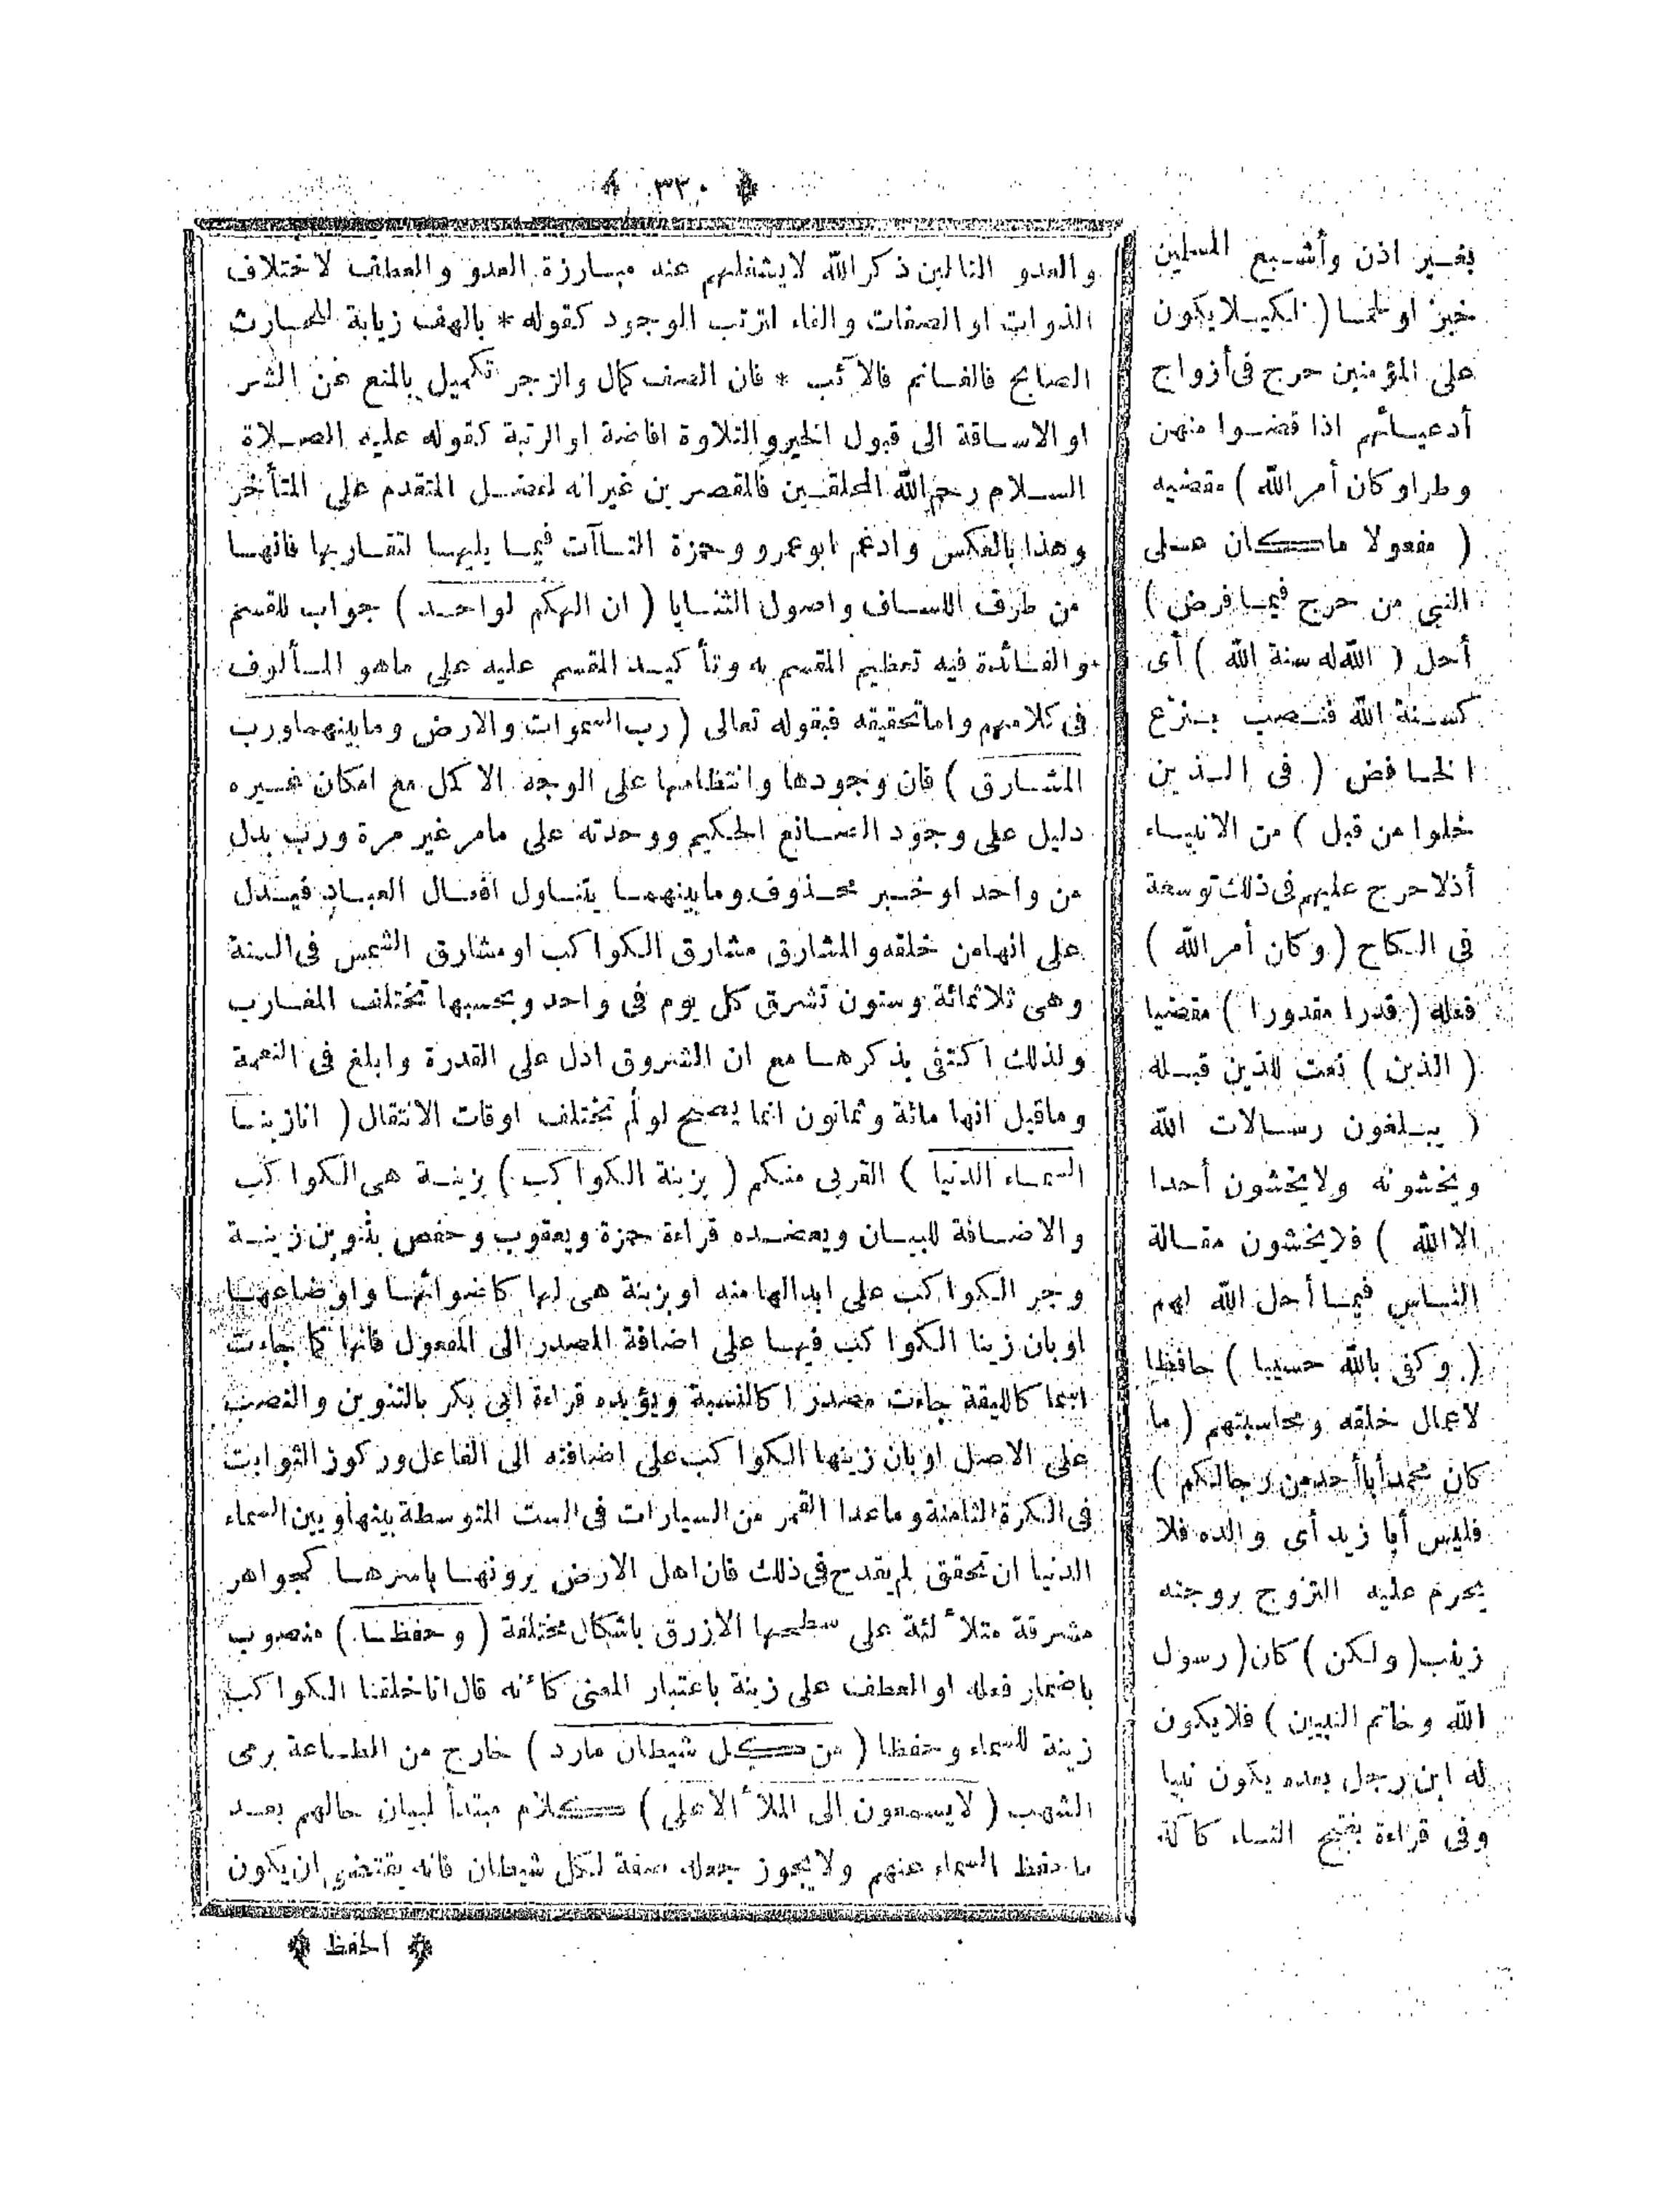 ﴿ ٣٣٠ ﴾
والعدو التالين ذكر الله لا يشغلهم عنه مبارزة العدو والعطف لاختلاف
الذوات او الصفات والفاء لترتب الوجود كقوله * يالهف زيابة للحارث
الصابح فالغانم فالآئب * فان الصف كمال والزجر تكميل بالمنع عن الشر
او الاساقة الى قبول الخير والتلاوة افاضة او الرتبة كقوله عليه الصلاة
السلام رحم الله المحلقين فالمقصرين غير انه لفضل المتقدم على المتأخر
وهذا بالعكس وادغم ابو عمرو وحمزة التاآت فيما يليها لتقاربها فانها
من طرف اللسان واصول الثنايا ( ان الهكم لواحد ) جواب للقسم
والفائدة فيه تعظيم المقسم به وتأكيد المقسم عليه على ماهو المألوف
فى كلامهم واما تحقيقه فبقوله تعالى ( رب السموات والارض وما بينهما ورب
المشارق ) فان وجودها وانتظامها على الوجه الاكمل مع امكان غيره
دليل على وجود الصانع الحكيم ووحدته على مامر غير مرة ورب بدل
من واحد او خبر محذوف وما بينهما يتناول افعال العباد فيدل
على انها من خلقه والمشارق مشارق الكواكب او مشارق الشمس فى السنة
وهى ثلاثمائة وستون تشرق كل يوم فى واحد وبحسبها تختلف المغارب
ولذلك اكتفى بذكرها مع ان الشروق ادل على القدرة وابلغ فى النعمة
وماقيل انها مائة وثمانون انما يصح لو لم تختلف اوقات الانتقال ( انا زينا
السماء الدنيا ) القربى منكم ( بزينة الكواكب ) بزينة هى الكواكب
والاضافة للبيان ويعضده قراءة حمزة ويعقوب وحفص بتنوين زينة
وجر الكواكب على ابدالها منه او بزينة هى لها كاضوائها واوضاعها
او بان زينا الكواكب فيها على اضافة المصدر الى المفعول فانها كما جاءت
اسما كالليقة جاءت مصدرا كالنسبة ويؤيده قراءة ابى بكر بالتنوين والنصب
على الاصل او بان زينها الكواكب على اضافته الى الفاعل وركوز الثوابت
فى الكرة الثامنة وماعدا القمر من السيارات فى الست المتوسطة بينها وبين السماء
الدنيا ان تحقق لم يقدح فى ذلك فان اهل الارض يرونها باسرها كجواهر
مشرقة متلألئة على سطحها الازرق باشكال مختلفة ( وحفظا ) منصوب
باضمار فعله او العطف على زينة باعتبار المعنى كأنه قال انا خلقنا الكواكب
زينة للسماء وحفظا ( من كل شيطان مارد ) خارج من الطاعة برمى
الشهب ( لا يسمعون الى الملأ الاعلى ) كلام مبتدأ لبيان حالهم بعد
ما حفظ السماء عنهم ولا يجوز جعله صفة لكل شيطان فانه يقتضى ان يكون
﴿ الحفظ ﴾
بغير اذن وأشبع المسلمين
خبز اولحما ( لكيلا يكون
على المؤمنين حرج فى أزواج
أدعيائهم اذا قضوا منهن
وطرا وكان أمر الله ) مقضيه
( مفعولا ما كان على
النبى من حرج فيما فرض )
أحل ( الله له سنة الله ) أى
كسنة الله فنصب بنزع
الخافض ( فى الذين
خلوا من قبل ) من الانبياء
أذلا حرج عليهم فى ذلك توسعة
فى النكاح ( وكان أمر الله )
فعله ( قدرا مقدورا ) مقضيا
( الذين ) نعت للذين قبله
( يبلغون رسالات الله
ويخشونه ولا يخشون أحدا
الا الله ) فلا يخشون مقالة
الناس فيما أحل الله لهم
( وكفى بالله حسيبا ) حافظا
لاعمال خلقه ومحاسبتهم ( ما
كان محمد أبا أحد من رجالكم )
فليس أبا زيد أى والده فلا
يحرم عليه التزوج بزوجته
زينب ( ولكن ) كان ( رسول
الله وخاتم النبيين ) فلا يكون
له ابن رجل بعده يكون نبيا
وفى قراءة بفتح التاء كآلة